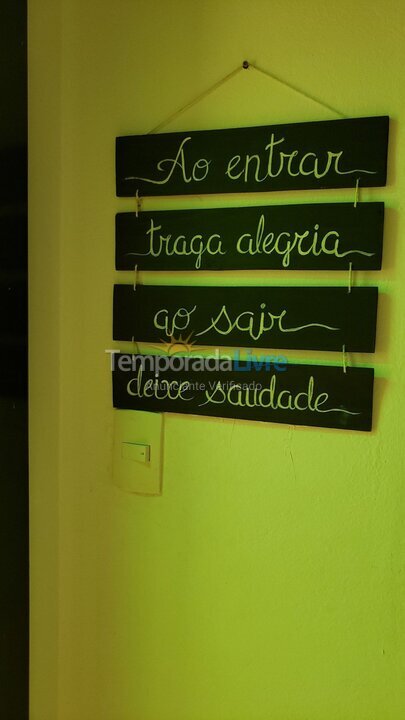 Ao entrar
traga alegria
ao sair
TemporadaLivre
deixe saudade
Anunciante Verificado